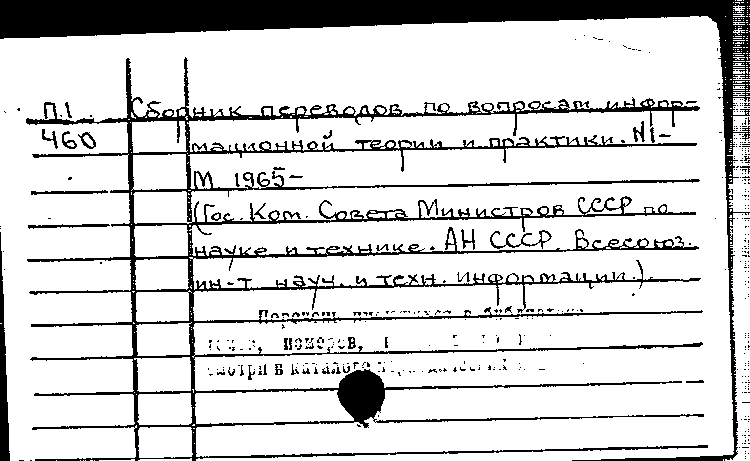 П.1. Сборник переводов по вопросам инфор-
460 мационной теории и практики. N1-
М, 1965-
(Гос. Ком. Совета Министров СССР по
науке и технике. АН СССР. Всесоюз.
ин-т науч. и техн. информации.).
Перечень имеющихся в библиотеке
томов, номеров,
смотри в каталоге